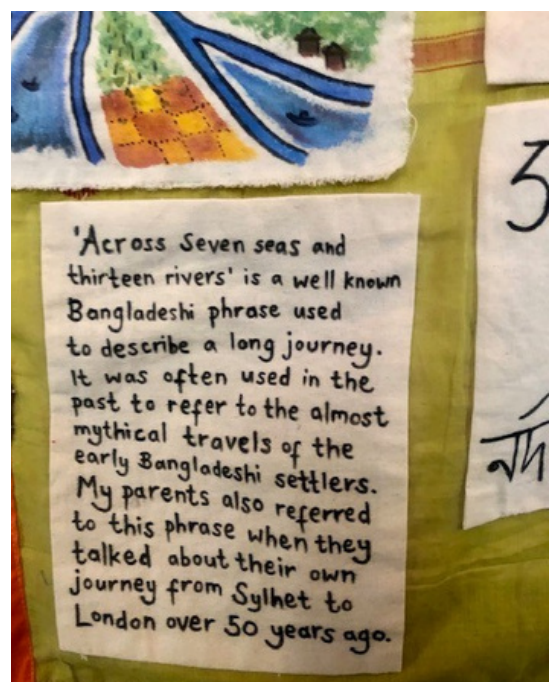 'Across Seven seas and
thirteen rivers' is a well known
Bangladeshi phrase used
to describe a long journey.
It was often used in the
past to refer to the almost
mythical travels of the
early Bangladeshi settlers.
My parents also referred
to this phrase when they
talked about their own
journey from Sylhet to
London over 50 years ago.